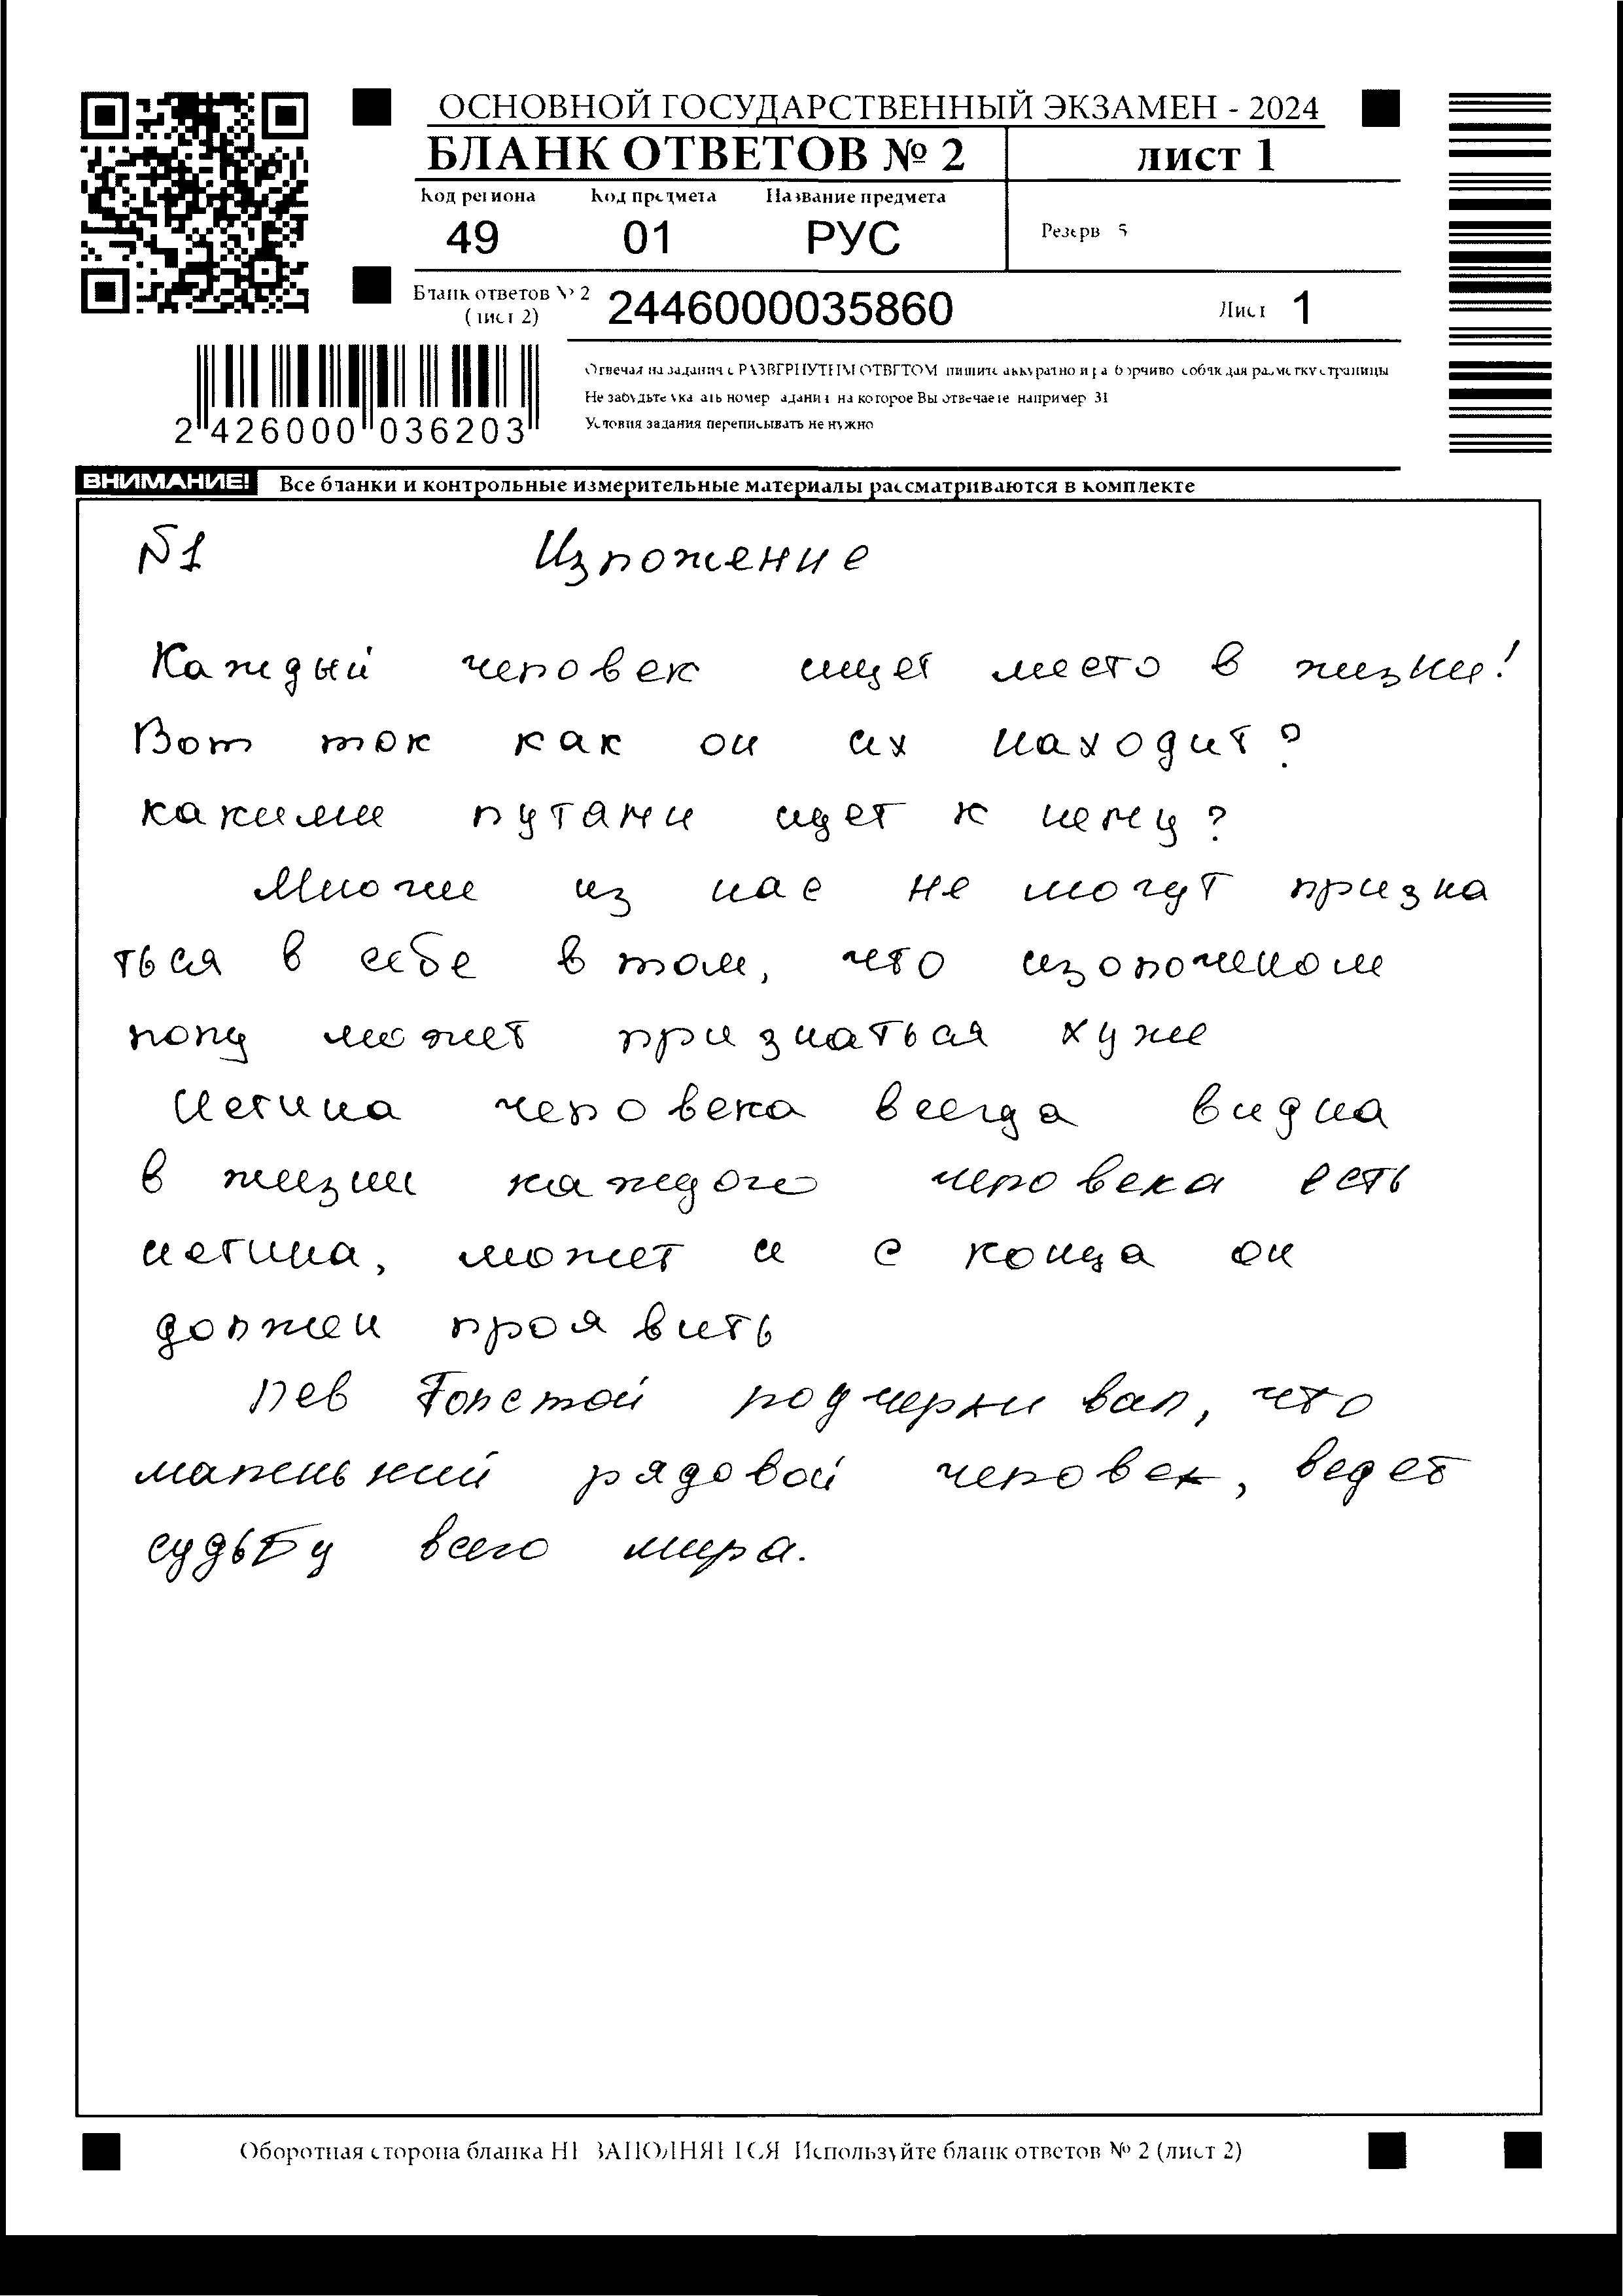 ОСНОВНОЙ ГОСУДАРСТВЕННЫЙ ЭКЗАМЕН - 2024
БЛАНК ОТВЕТОВ № 2 лист 1
Код региона Код предмета Название предмета
49 01 РУС Резерв 5
Бланк ответов № 2
(лист 2) 2446000035860 Лист 1
Отвечая на задания с РАЗВЕРНУТЫМ ОТВЕТОМ пишите аккуратно и разборчиво соблюдая разметку страницы
Не забудьте указать номер задания на которое Вы отвечаете например 31
Условия задания переписывать не нужно
2 426000 036203
ВНИМАНИЕ! Все бланки и контрольные измерительные материалы рассматриваются в комплекте
№1 Изложение
Каждый человек ищет место в жизни!
Вот ток как он их находит?
какими путями идет к нему?
Многие из нас не могут призна
ться в себе в том, что
полу может признаться хуже
Истина человека всегда видна
в жизни каждого человека есть
истина, может и с конца он
должен проявить
Лев Толстой подчеркивал, что
маленький рядовой человек, ведет
судьбу всего мира.
Оборотная сторона бланка НЕ ЗАПОЛНЯЕТСЯ Используйте бланк ответов № 2 (лист 2)